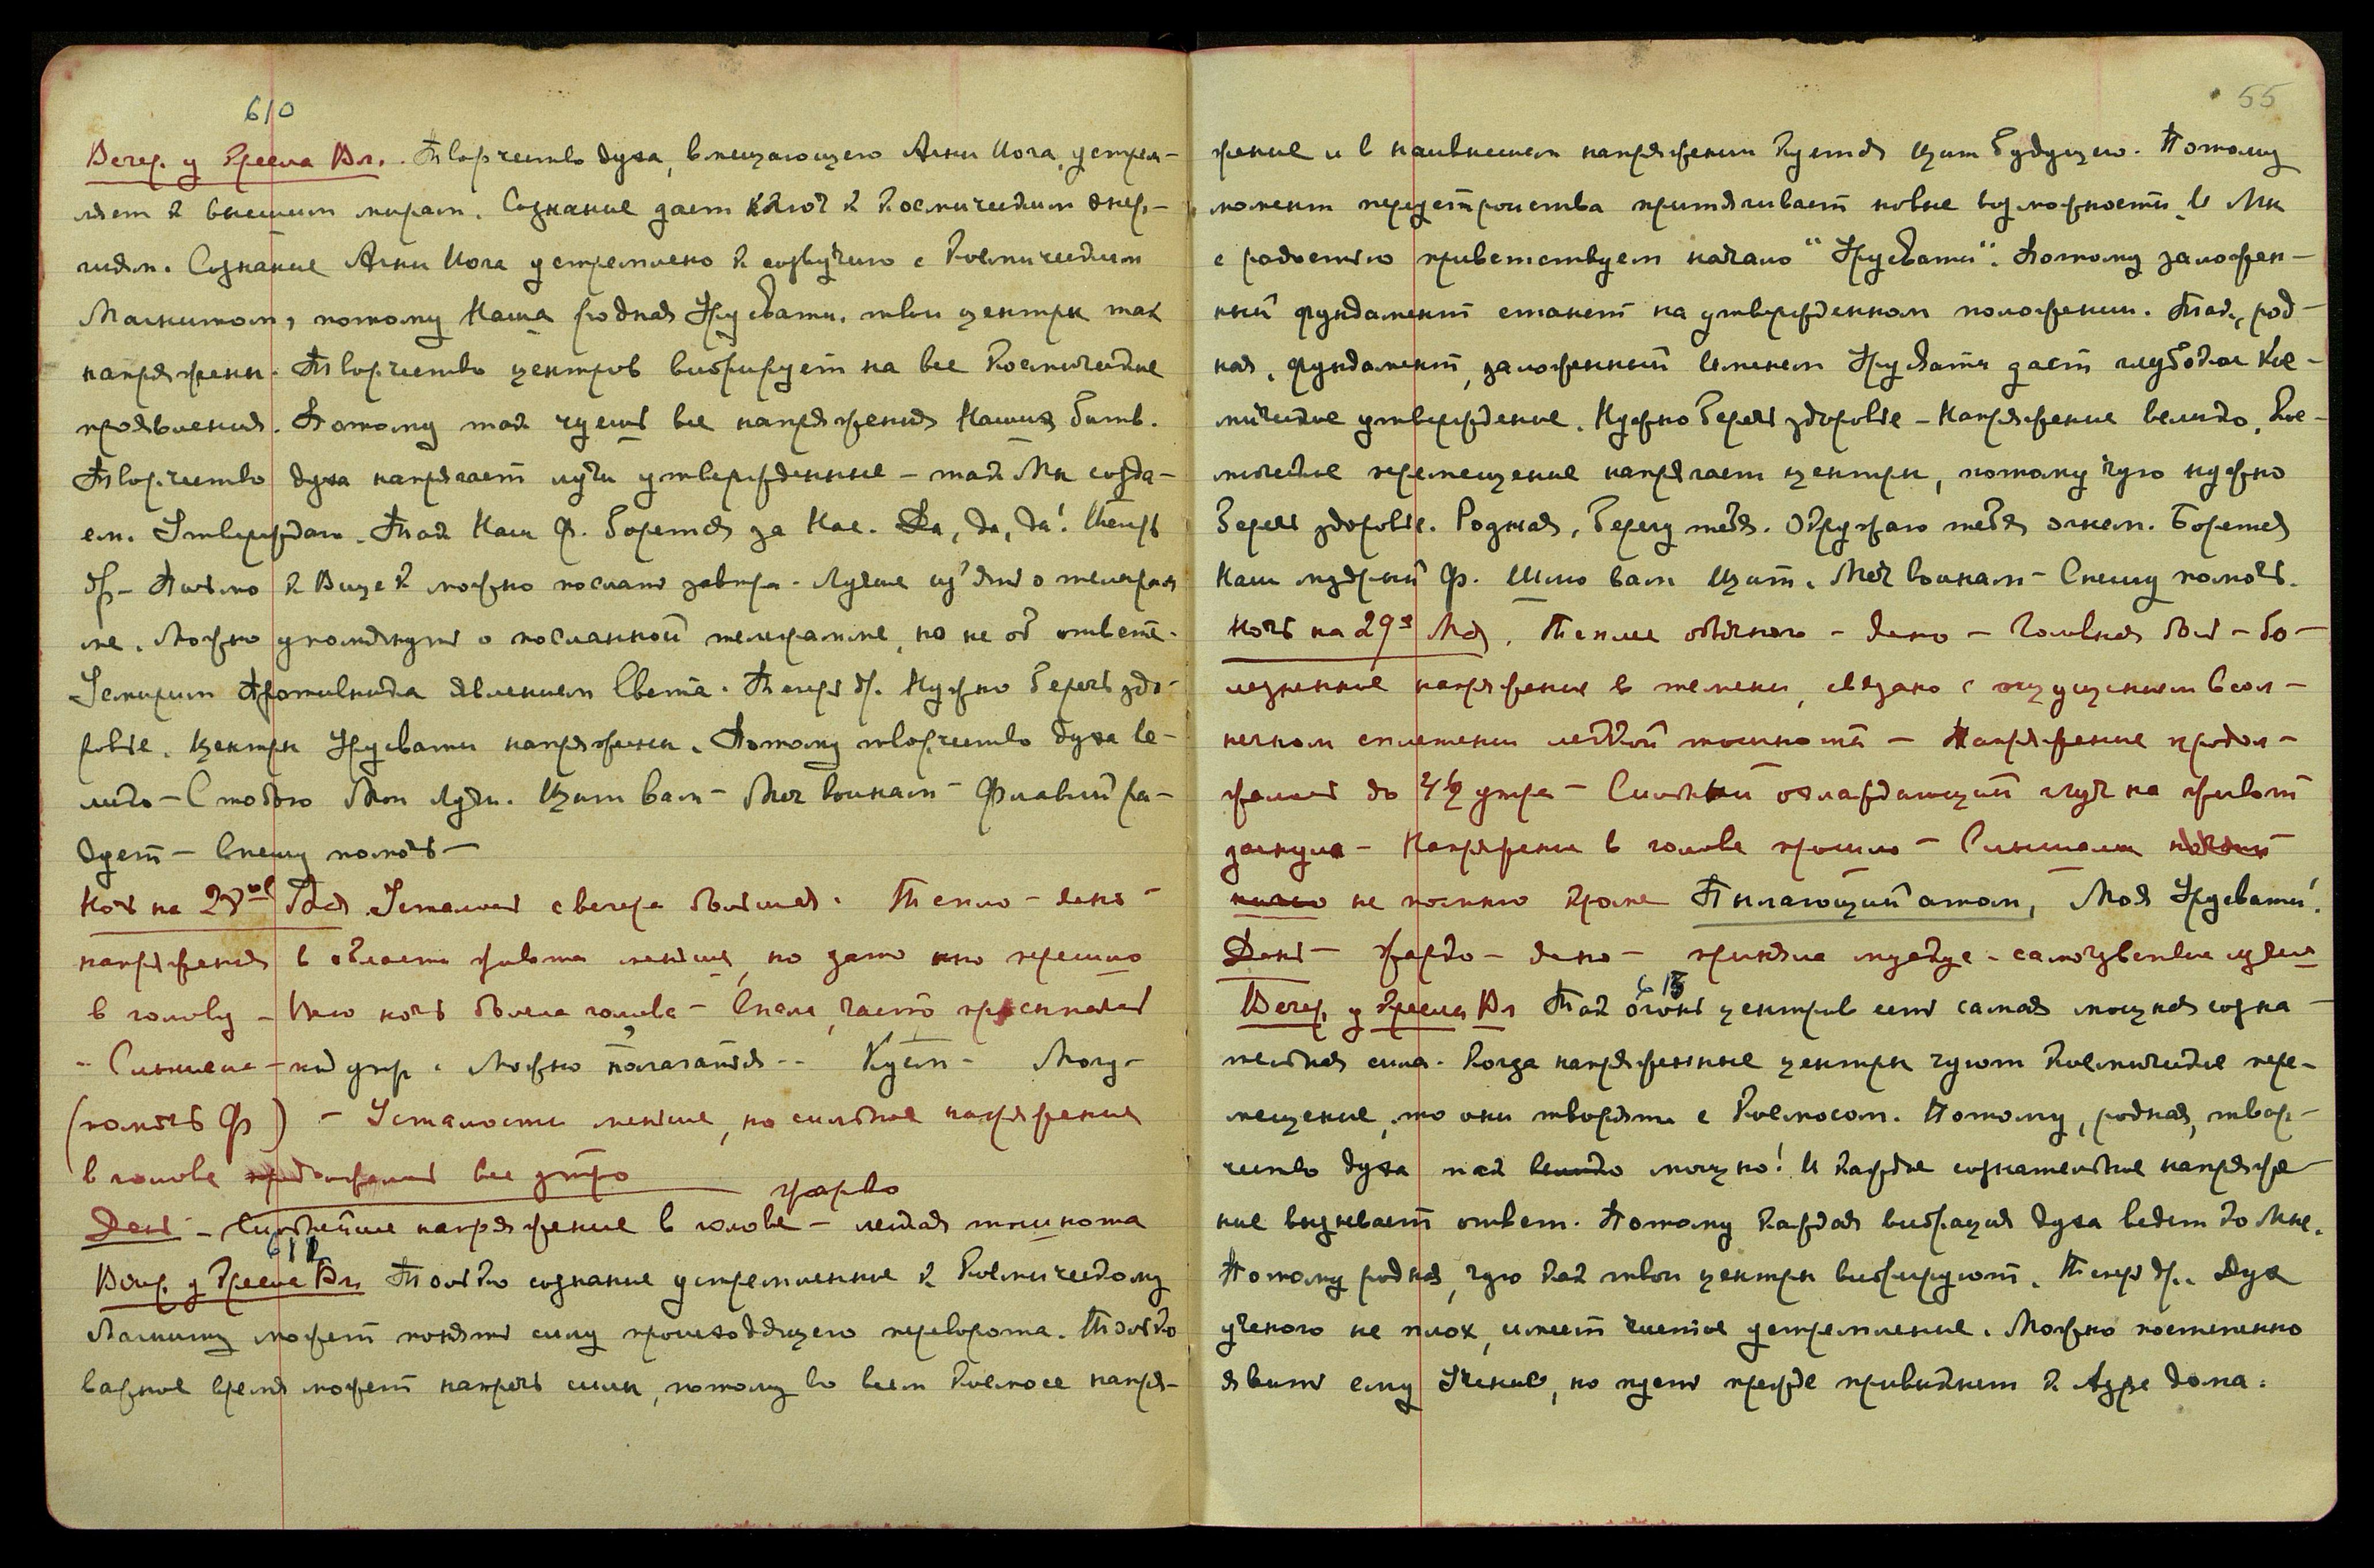 610
Вечер. у Кресла Вл. Творчество духа, вмещающего Агни Йога, устрем-
ляет к высшим мирам. Сознание дает ключ к космическим энер-
гиям. Сознание Агни Йога устремлено к созвучию с Космическим
Магнитом, потому Наша родная Урусвати, твои центры так
напряжены. Творчество центров вибрирует на все Космические
проявления. Потому так чуешь все напряжения Наших битв.
Творчество духа напрягает лучи утвержденные – так Мы созда-
ем. Утверждаю. Так Наш Ф. борется за Нас. Да, да, да! Теперь
др – Письмо к можно послать завтра. Лучше изъять о телеграм
ме. Можно упомянуть о посланной телеграмме, но не об ответе.
Усмирим Противника явлением Света. Теперь др. Нужно беречь здо-
ровье. Центры Урусвати напряжены. Потому творчество духа ве-
лико – С тобою Мои Лучи. Щит вам – Меч воинам – Флавий ра-
дует – спешу помочь –
Ночь на 28ое Мая Усталость с вечера большая. Тепло – ясно –
напряжения в области живота меньше, но зато оно перешло
в голову – Всю ночь болела голова – Спала, часто просыпалась
– Слышала – Можно полагаться – Кует – Могу –
(помочь Ф) – Усталости меньше, но сильное напряжение
в голове продолжалось все утро
жарко
День – Сильнейшее напряжение в голове – легкая тошнота
612
Вечер. у Кресла Вл. Только сознание устремленное к Космическому
Магниту может понять силу происходящего переворота. Только
важное время может напречь силы, потому во всем Космосе напря-
55
жение и в наивысшем напряжении куется щит будущего. Потому
момент переустройства притягивает новые возможности, и Мы
с радостью приветствуем начало "Урусвати". Потому заложен-
ный фундамент станет на утвержденном положении. Так, род-
ная, фундамент, заложенный именем Урусвати дает глубокое Кос-
мическое утверждение. Нужно беречь здоровье – Напряжение велико. Кос-
мическое перемещение напрягает центры, потому чую нужно
беречь здоровье. Родная, берегу тебя. Окружаю тебя огнем. Борется
Наш мудрый Ф. Шлю вам Щит. Меч воинам – Спешу помочь.
Ночь на 29е Мая. Теплее обычного – Ясно – Головная боль – бо-
лезненное напряжение в темени, связано с ощущением в сол-
нечном сплетении легкой тошноты – Напряжение продол-
жалось до 4½ утра – Сильный охлаждающий луч на живот
заснула – Напряжение в голове прошло – Слышала
ничего не помню кроме Пылающий атом, Моя Урусвати!
День – жарко – ясно – приняла – самочувствие
613
Вечер. у Кресла Вл Так огонь центров есть самая мощная созна-
тельная сила. Когда напряженные центры чуют Космическое пере-
мещение, то они творят с Космосом. Потому, родная, твор-
чество духа так велико мощно! И каждое сознательное напряже-
ние вызывает ответ. Потому каждая вибрация духа ведет ко Мне.
Потому родная, чую как твои центры вибрируют. Теперь др. Дух
ученого не плох, имеет чистое устремление. Можно постепенно
явить ему Учение, но пусть прежде привыкнет к Ауре дома.